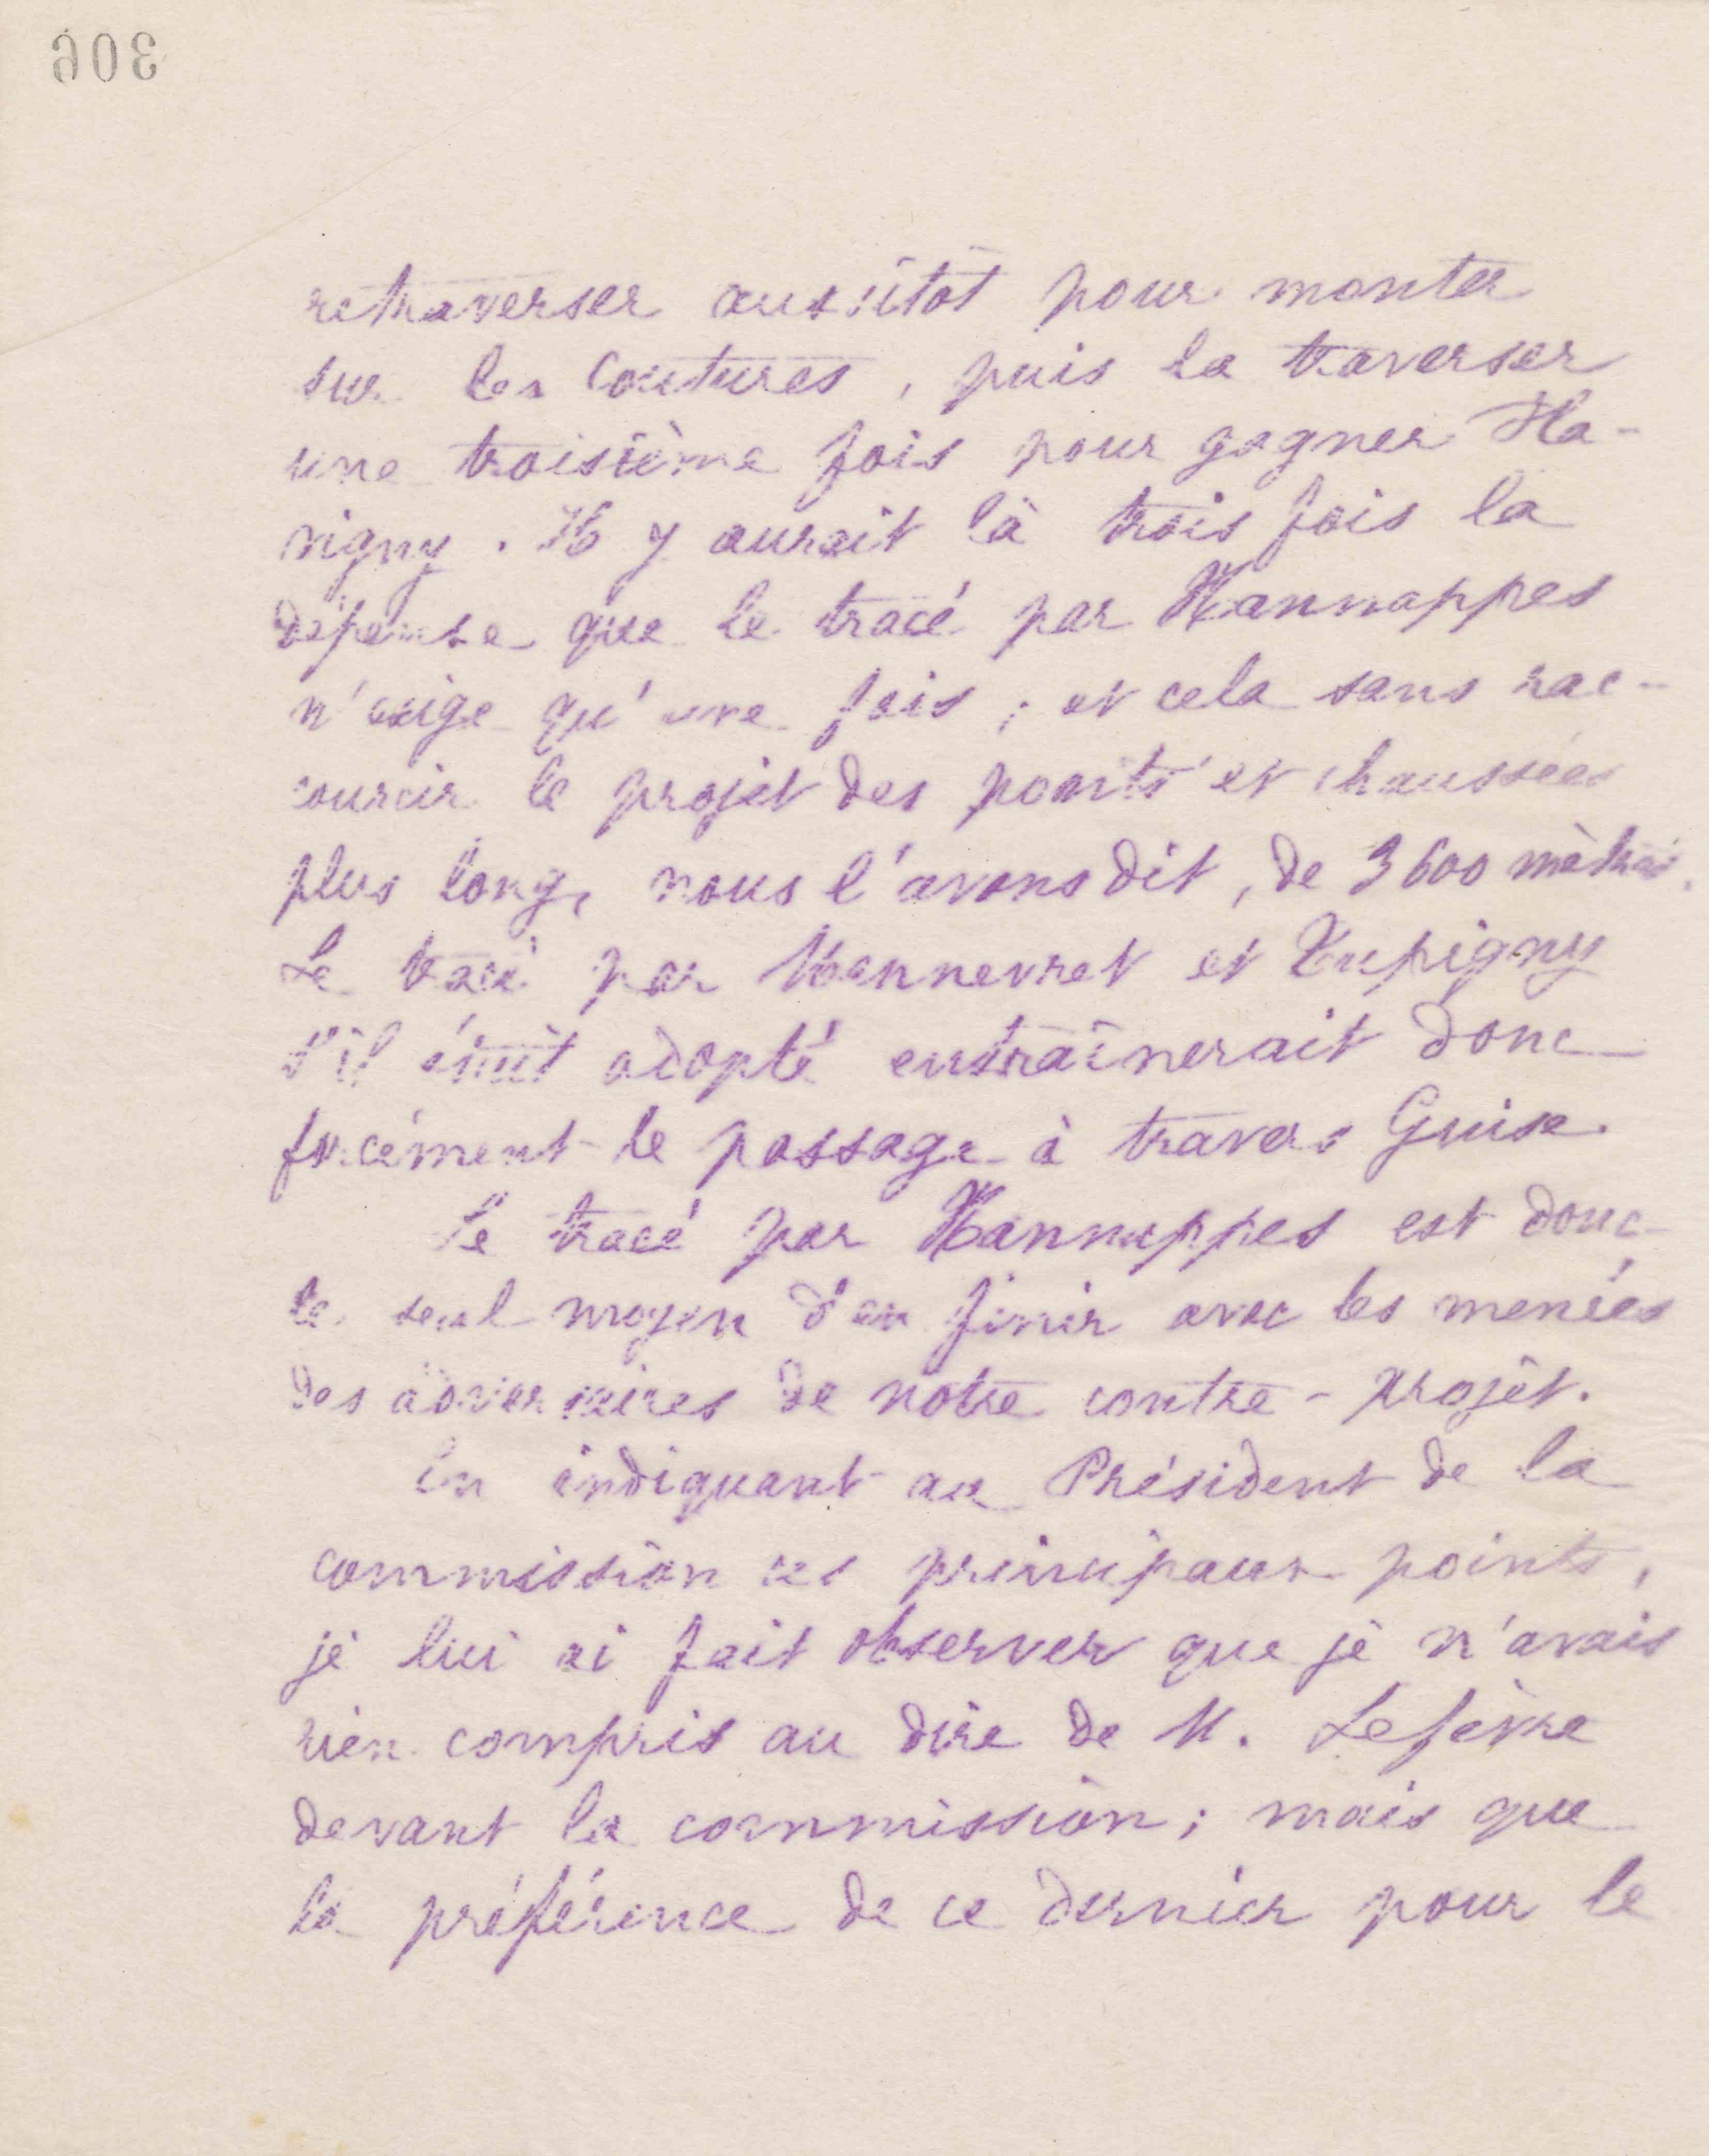 306
retraverser aussitôt pour monter
sur les coutures, puis la traverser
une troisième fois pour gagner Ha-
vigny. Il y aurait là trois fois la
dépense que le tracé par Hannappes
n'exige qu'une fois; et cela sans rac-
courcir le projet des ponts et chaussées
plus long, nous l'avons dit, de 3600 mètres.
Le tracé par Vennevret et Tupigny
s'il était adopté entraînerait donc
forcément le passage à travers Guise.
Le tracé par Hannappes est donc
le seul moyen d'en finir avec les menées
des adversaires de notre contre-projet.
En indiquant au Président de la
commission ces principaux points,
je lui ai fait observer que je n'avais
rien compris au dire de M. Lefèvre
devant la commission; mais que
la préférence de ce dernier pour le